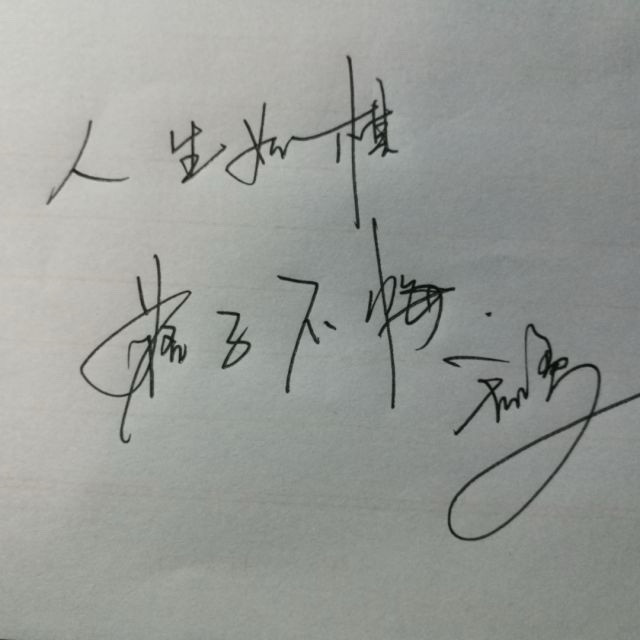 人生如棋
落子不悔